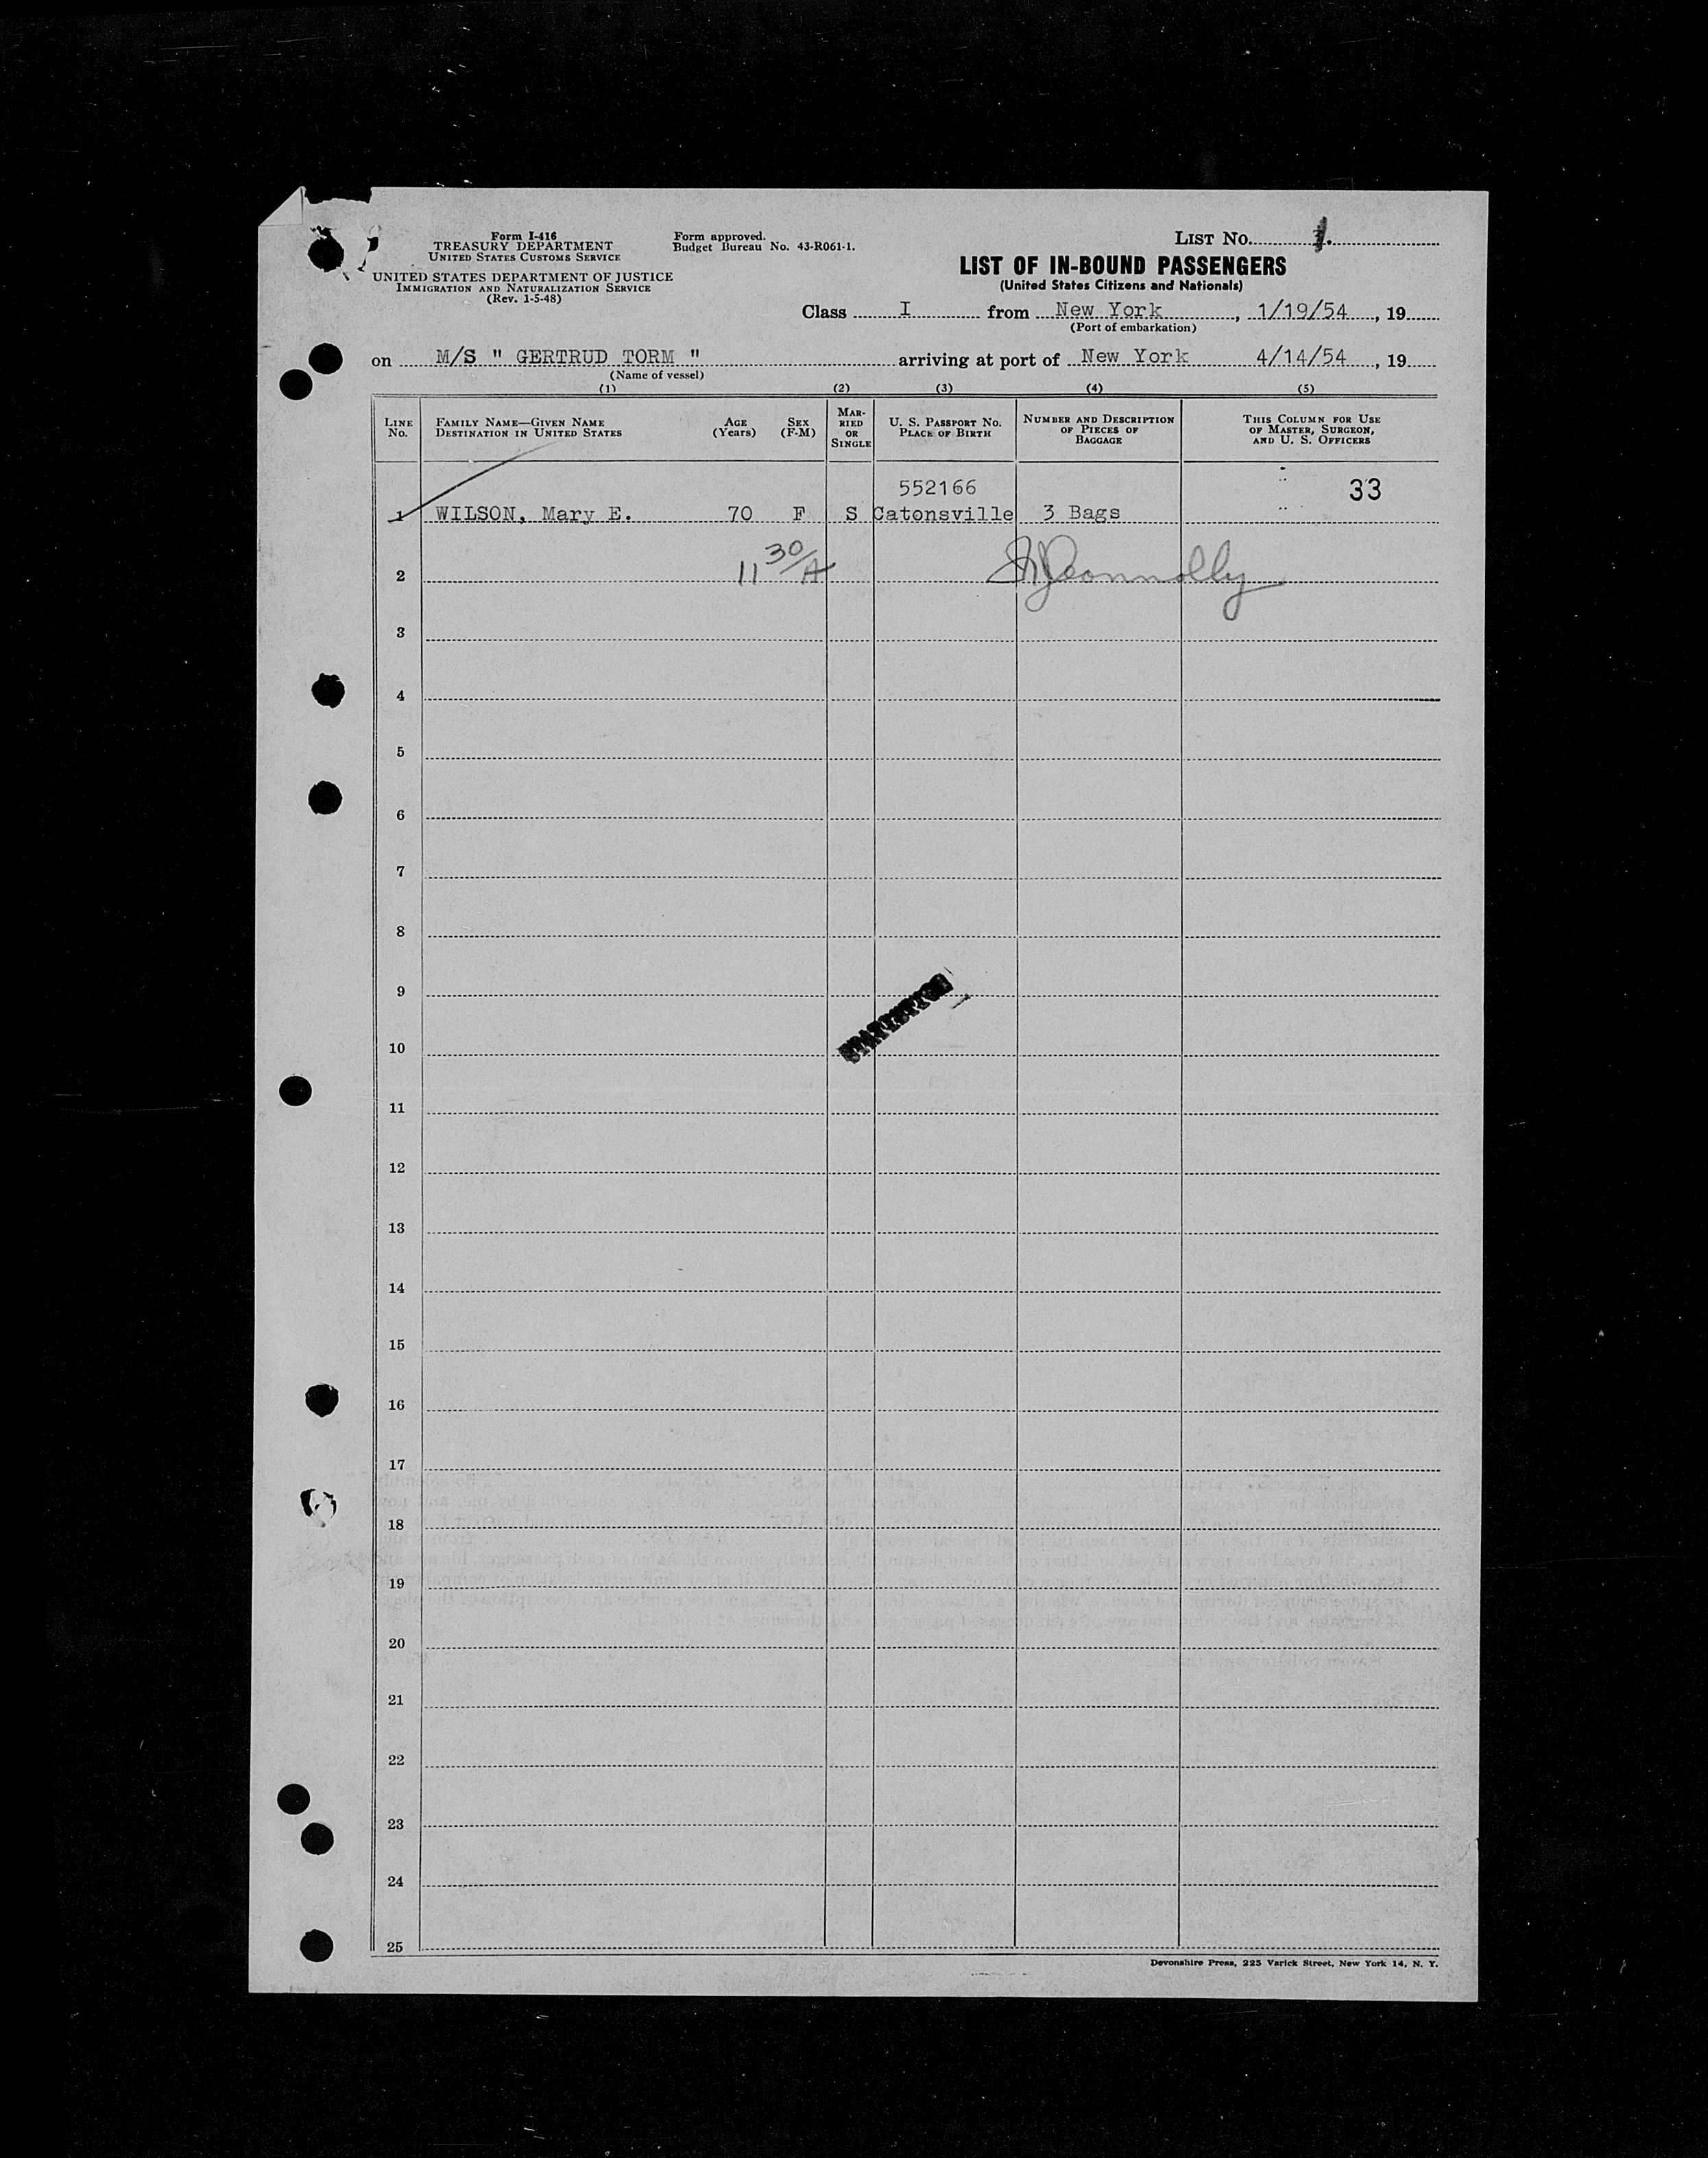 Form I-416
TREASURY DEPARTMENT
UNITED STATES CUSTOMS SERVICE
UNITED STATES DEPARTMENT OF JUSTICE
IMMIGRATION AND NATURALIZATION SERVICE
(Rev. 1-5-48)
Form approved.
Budget Bureau No. 43-R061-1.
LIST No. 1.
LIST OF IN-BOUND PASSENGERS
(United States Citizens and Nationals)
Class I from New York, 1/19/54, 19
(Port of embarkation)
on M/S " GERTRUD TORM " arriving at port of New York 4/14/54, 19
(Name of vessel)
(1) (2) (3) (4) (5)
LINE No.
FAMILY NAME—GIVEN NAME
DESTINATION IN UNITED STATES
AGE (Years)
SEX (F-M)
MARRIED OR SINGLE
U. S. PASSPORT No.
PLACE OF BIRTH
NUMBER AND DESCRIPTION OF PIECES OF BAGGAGE
THIS COLUMN FOR USE OF MASTER, SURGEON, AND U. S. OFFICERS
552166 33
1 WILSON, Mary E. 70 F S Catonsville 3 Bags
2 11 30/A Connolly
3
4
5
6
7
8
9
10
11
12
13
14
15
16
17
18
19
20
21
22
23
24
25
Devonshire Press, 225 Varick Street, New York 14, N. Y.